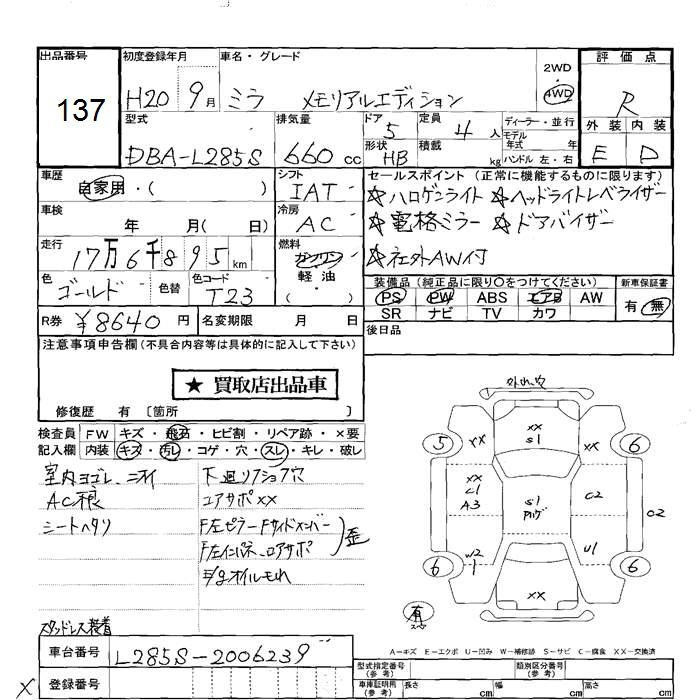 出品番号
137
初度登録年月
H20 9月
車名・グレード
ミラ メモリアルエディション
2WD
・
4WD
評価点
R
外装 内装
E D
型式
DBA-L285S
排気量
660 cc
ドア 5
形状 HB
定員 4 人
積載 kg
ディーラー・並行
モデル
年式 年
ハンドル 左・右
車歴
自家用・( )
シフト
IAT
セールスポイント (正常に機能するものに限ります)
☆ハロゲンライト ☆ヘッドライトレベライザー
☆電格ミラー ☆ドアバイザー
☆社外AW付
車検
年 月( 日)
冷房
AC
走行
17万6千895km
燃料
ガソリン
軽油
( ・ )
色
ゴールド
色替
色コード
T23
装備品 (純正品に限り○をつけてください)
PS PW ABS エアB AW
SR ナビ TV カワ
新車保証書
有 無
R券 ¥8640 円
名変期限 月 日
後日品
注意事項申告欄 (不具合内容等は具体的に記入して下さい)
★ 買取店出品車
修復歴 有 [箇所 ]
検査員 FW キズ・飛石・ヒビ割・リペア跡・×要
記入欄 内装 キズ・汚レ・コゲ・穴・スレ・キレ・破レ
室内ヨゴレ、ニオイ
AC根
シートヘタリ
下廻リフショ穴
コアサポXX
F左ピラーFサイドメンバー
F左インパネ、ロアサポ
歪
オイルモれ
スタッドレス装着
外れ、穴
XX
S1
5
XX
XX
6
XX
C1
A3
S1
C2
C2
W2
1
U1
6
6
XX
有
A-キズ E-エクボ U-凹み W-補修跡 S-サビ C-腐食 XX-交換済
車台番号
L285S-2006239
型式指定番号
(参考)
類別区分番号
(参考)
X
登録番号
車庫証明用
(参考)
長さ cm
幅 cm
高さ cm